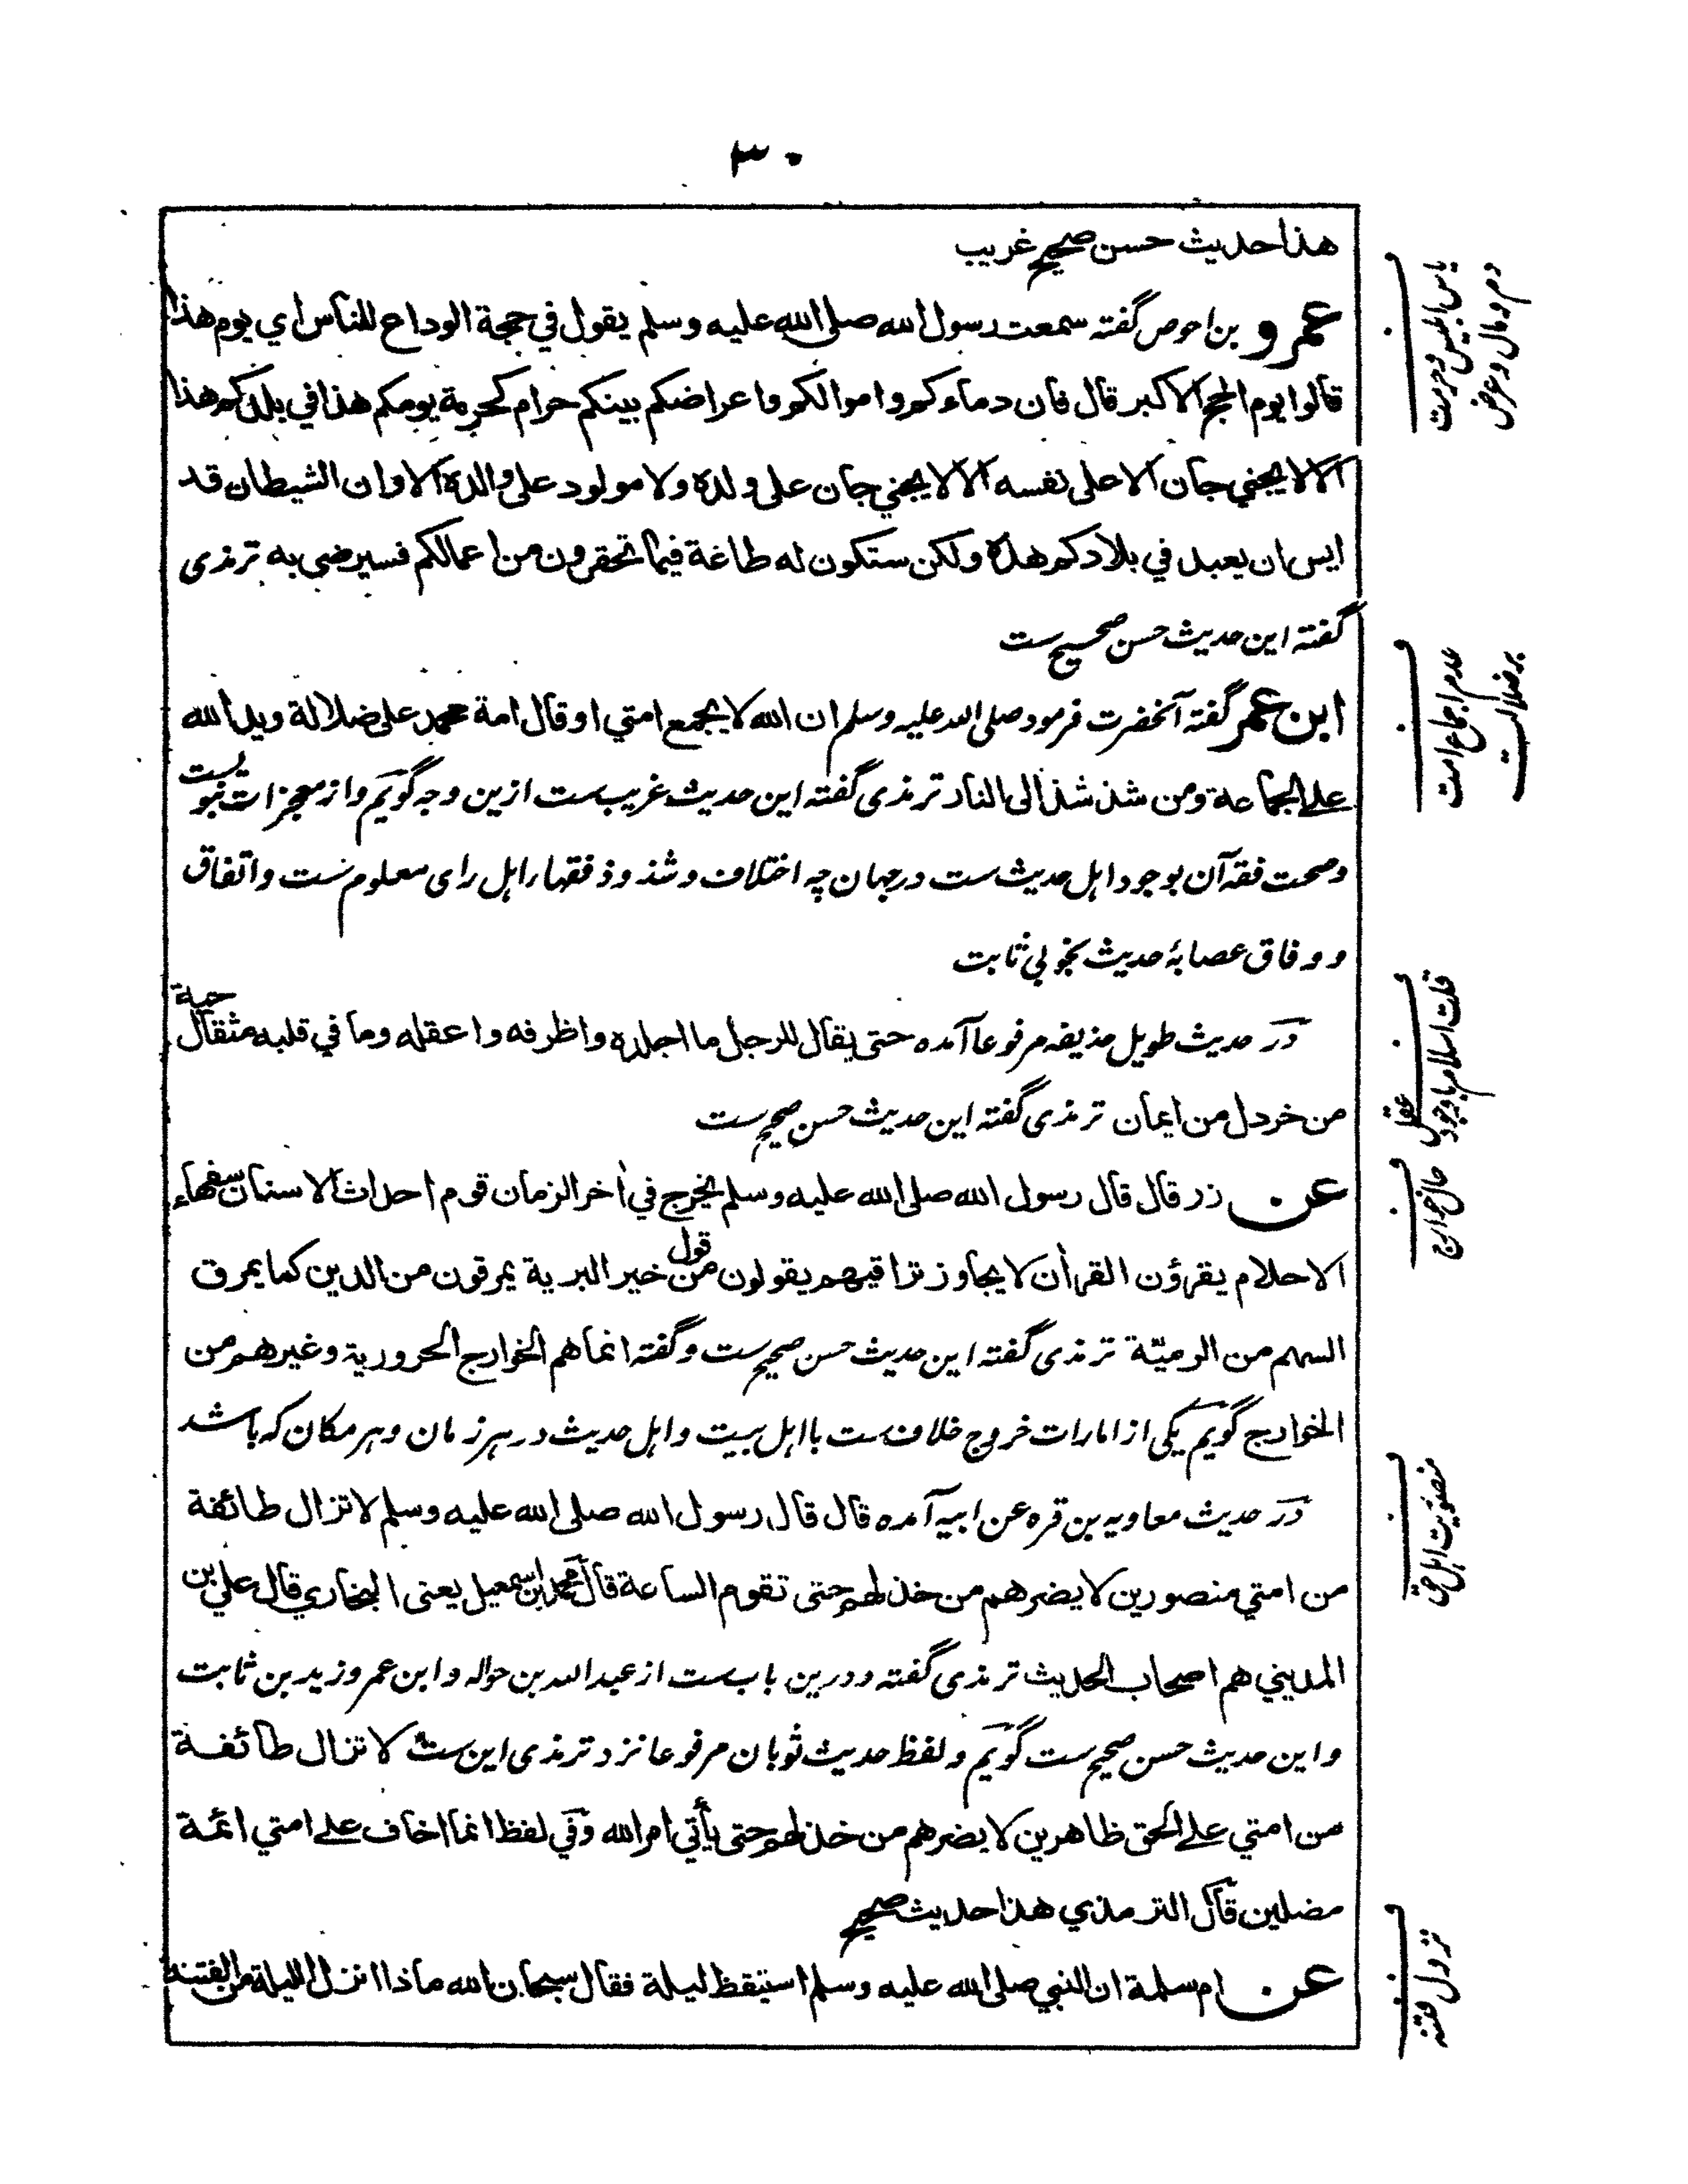 ۳۰
هذا حديث حسن صحيح غريب
عمرو بن احوص گفته سمعت رسول الله صلى الله عليه وسلم يقول في حجة الوداع للناس اي يوم هذا
قالوا يوم الحج الاكبر قال فان دماءكم واموالكم واعراضكم بينكم حرام كحرمة يومكم هذا في بلدكم هذا
الا لا يجني جان الا على نفسه الا لا يجني جان على ولده ولا مولود على والده الا وان الشيطان قد
ايس ان يعبد في بلادكم هذه ولكن ستكون له طاعة فيما تحقرون من اعمالكم فسيرضى به ترمذی
گفته این حدیث حسن صحیح ست
ابن عمر گفته آنحضرت فرمود صلی الله علیه وسلم ان الله لا يجمع امتي او قال امة محمد على ضلالة ويد الله
على الجماعة ومن شذ شذ الى النار ترمذی گفته این حدیث غریب ست ازین وجه گویم و از معجزات نبوت ست
وصحت فقه آن بوجود اهل حدیث ست در جهان چه اختلاف و شذوذ فقهاء اهل رای معلوم ست و اتفاق
و وفاق عصابۀ حدیث بخوبی ثابت
در حدیث طویل حذیفه مرفوعا آمده حتى يقال للرجل ما اجلده واظرفه واعقله وما في قلبه مثقال حبة
من خردل من ايمان ترمذی گفته این حدیث حسن صحیح ست
عن زر قال قال رسول الله صلى الله عليه وسلم يخرج في أخر الزمان قوم احداث الاسنان سفهاء
الاحلام يقرؤن القرأن لا يجاوز تراقيهم يقولون من قول خير البرية يمرقون من الدين كما يمرق
السهم من الرميّة ترمذی گفته این حدیث حسن صحیح ست و گفته انما هم الخوارج الحرورية وغيرهم من
الخوارج گویم یکی از امارات خروج خلاف ست با اهل بیت و اهل حدیث در هر زمان و هر مکان که باشد
در حدیث معاویه بن قره عن ابیه آمده قال قال رسول الله صلى الله عليه وسلم لا تزال طائفة
من امتي منصورين لا يضرهم من خذلهم حتى تقوم الساعة قال محمد ابن اسمعيل يعنى البخاري قال علي بن
المديني هم اصحاب الحديث ترمذی گفته و درین باب ست از عبد الله بن حواله و ابن عمر و زید بن ثابت
و این حدیث حسن صحیح ست گویم و لفظ حدیث ثوبان مرفوعا نزد ترمذی این ست لا تزال طائفة
من امتي على الحق ظاهرين لا يضرهم من خذلهم حتى يأتي امر الله وفي لفظ انما اخاف على امتي ائمة
مضلين قال الترمذي هذا حديث صحيح
عن ام سلمة ان النبي صلى الله عليه وسلم استيقظ ليلة فقال سبحان الله ماذا انزل الليلة من الفتنة
یاس ابلیس و حرمت
دم و مال و عرض
عدم اجماع امت
بر ضلالت
قلت اسلام با وجود
عقل
حال خوارج
منصوریت اهل حق
نزول فتنه